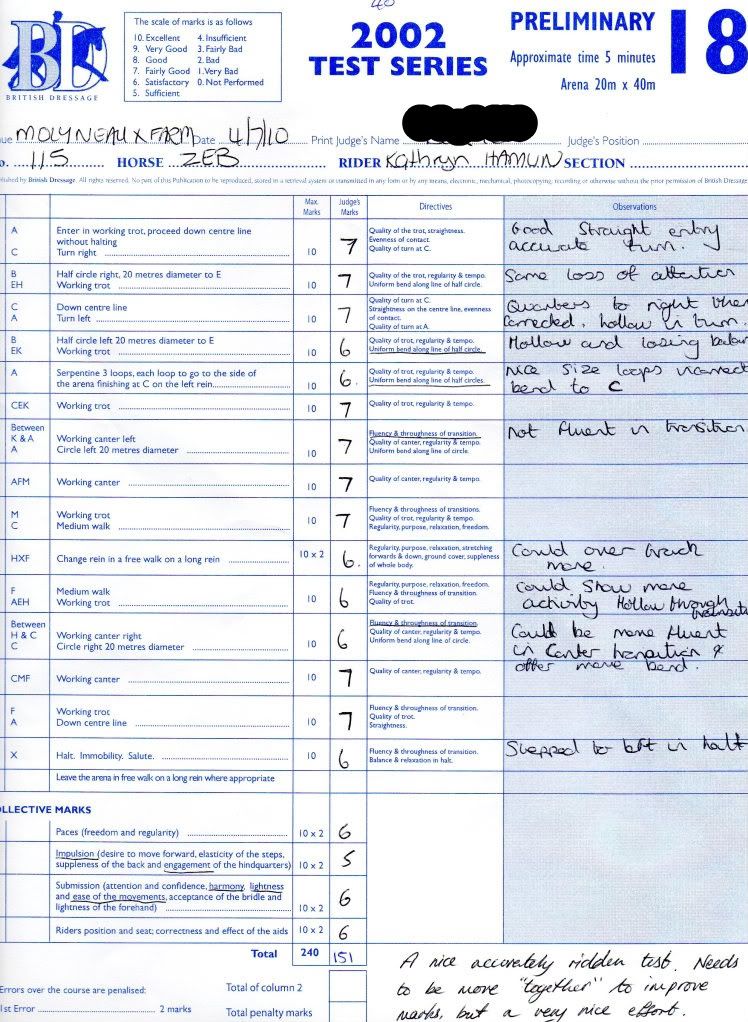 40
BD
BRITISH DRESSAGE
The scale of marks is as follows
10. Excellent 4. Insufficient
9. Very Good 3. Fairly Bad
8. Good 2. Bad
7. Fairly Good 1. Very Bad
6. Satisfactory 0. Not Performed
5. Sufficient
2002
TEST SERIES
PRELIMINARY 18
Approximate time 5 minutes
Arena 20m x 40m
ue MOLYNEAUX FARM Date 4/7/10 Print Judge's Name Judge's Position
o. 115 HORSE ZEB RIDER Kathryn HAMLIN SECTION
blished by British Dressage. All rights reserved. No part of this Publication to be reproduced, stored in a retrieval system or transmitted in any form or by any means, electronic, mechanical, photocopying, recording or otherwise without the prior permission of British Dressage
Max. Marks Judge's Marks Directives Observations
A Enter in working trot, proceed down centre line
without halting
C Turn right 10 7
Quality of the trot, straightness.
Evenness of contact.
Quality of turn at C.
Good Straight entry
accurate turn.
B Half circle right, 20 metres diameter to E
EH Working trot 10 7
Quality of the trot, regularity & tempo.
Uniform bend along line of half circle.
Some loss of attention
C Down centre line
A Turn left 10 7
Quality of turn at C.
Straightness on the centre line, evenness
of contact.
Quality of turn at A.
Quarters to right then
corrected. hollow in turn.
B Half circle left 20 metres diameter to E
EK Working trot 10 6
Quality of trot, regularity & tempo.
Uniform bend along line of half circle.
Hollow and losing balan
A Serpentine 3 loops, each loop to go to the side of
the arena finishing at C on the left rein 10 6.
Quality of trot, regularity & tempo.
Uniform bend along line of half circles.
nice size loops incorrect
bend to C
CEK Working trot 10 7
Quality of trot, regularity & tempo.
Between
K & A Working canter left
A Circle left 20 metres diameter 10 7
Fluency & throughness of transition.
Quality of canter, regularity & tempo.
Uniform bend along line of circle.
not fluent in transition
AFM Working canter 10 7
Quality of canter, regularity & tempo.
M Working trot
C Medium walk 10 7
Fluency & throughness of transitions.
Quality of trot, regularity & tempo.
Regularity, purpose, relaxation, freedom.
HXF Change rein in a free walk on a long rein 10 x 2 6.
Regularity, purpose, relaxation, stretching
forwards & down, ground cover, suppleness
of whole body.
Could over track
more.
F Medium walk
AEH Working trot 10 6
Regularity, purpose, relaxation, freedom.
Fluency & throughness of transition.
Quality of trot.
Could Show more
activity Hollow through
Between
H & C Working canter right
C Circle right 20 metres diameter 10 6
Fluency & throughness of transition.
Quality of canter, regularity & tempo.
Uniform bend along line of circle.
Could be more fluent
in Canter transition &
offer more bend.
CMF Working canter 10 7
Quality of canter, regularity & tempo.
F Working trot
A Down centre line 10 7
Fluency & throughness of transition.
Quality of trot.
Straightness.
X Halt. Immobility. Salute. 10 6
Fluency & throughness of transition.
Balance & relaxation in halt.
Stepped to left in halt
Leave the arena in free walk on a long rein where appropriate
OLLECTIVE MARKS
Paces (freedom and regularity) 10 x 2 6
Impulsion (desire to move forward, elasticity of the steps,
suppleness of the back and engagement of the hindquarters) 10 x 2 5
Submission (attention and confidence, harmony, lightness
and ease of the movements, acceptance of the bridle and
lightness of the forehand) 10 x 2 6
Riders position and seat; correctness and effect of the aids 10 x 2 6
Total 240 151
A nice accurately ridden test. Needs
to be more "together" to improve
marks, but a very nice effort.
Errors over the course are penalised:
1st Error 2 marks
Total of column 2
Total penalty marks